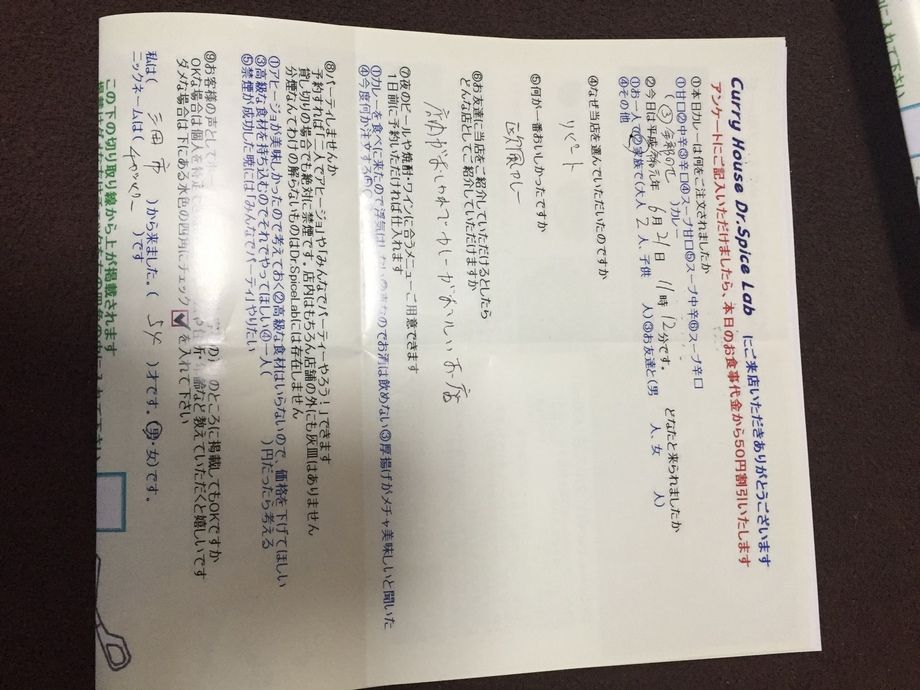 Curry House Dr.Spice Lab にご来店いただきありがとうございます
アンケートにご記入いただけましたら、本日のお食事代金から50円割引いたします
①本日カレーは何をご注文されましたか
①甘口②中辛③辛口④スープ甘口⑤スープ中辛⑥スープ辛口
)カレー
②今日は平成 元年 6月21日 11時12分です。 どなたと来られましたか
①お一人で②ご家族で(大人 2人、子供 人)③お友達と(男 人、女 人)
④その他
④なぜ当店を選んでいただいたのですか
リピート
⑤何が一番おいしかったですか
欧風カレー
⑥お友達に当店をご紹介していただけるとしたら
どんな店としてご紹介していただけますか
カレーがおいしいお店
⑦夜のビールや焼酎・ワインに合うメニューご用意できます
1日前に予約いただければ仕入れます
①カレーを食べに来たので浮気はしない②車なのでお酒は飲めない③厚揚げがメチャ美味しいと聞いた
④今度何か注文する
⑧パーティしませんか
予約すれば「二人でアヒージョ」や「みんなでパーティーやろう!」できます
貸し切りの場合でも絶対に禁煙です。店内はもちろん店舗の外にも灰皿はありません
分煙なんてわけの解らないものはDr.SpiceLabには存在しません
①アヒージョが美味しかったので考えておく②高級な食材はいらないので、価格を下げてほしい
③高級な食材を持ち込むのでそれでやってほしい④一人( )円だったら考える
⑤禁煙が成功した暁には「みんなでパーティ」やりたい
⑨お客様の声として のところに掲載してもOKですか
OKな場合は個人を特定 など教えていただくと嬉しいです
ダメな場合は下にある水色の四角にチェック☑を入れて下さい
私は( 三田市 )から来ました。( 54 )才です。(男・女)です。
ニックネームは( )です
この下の切り取り線から上が掲載されます